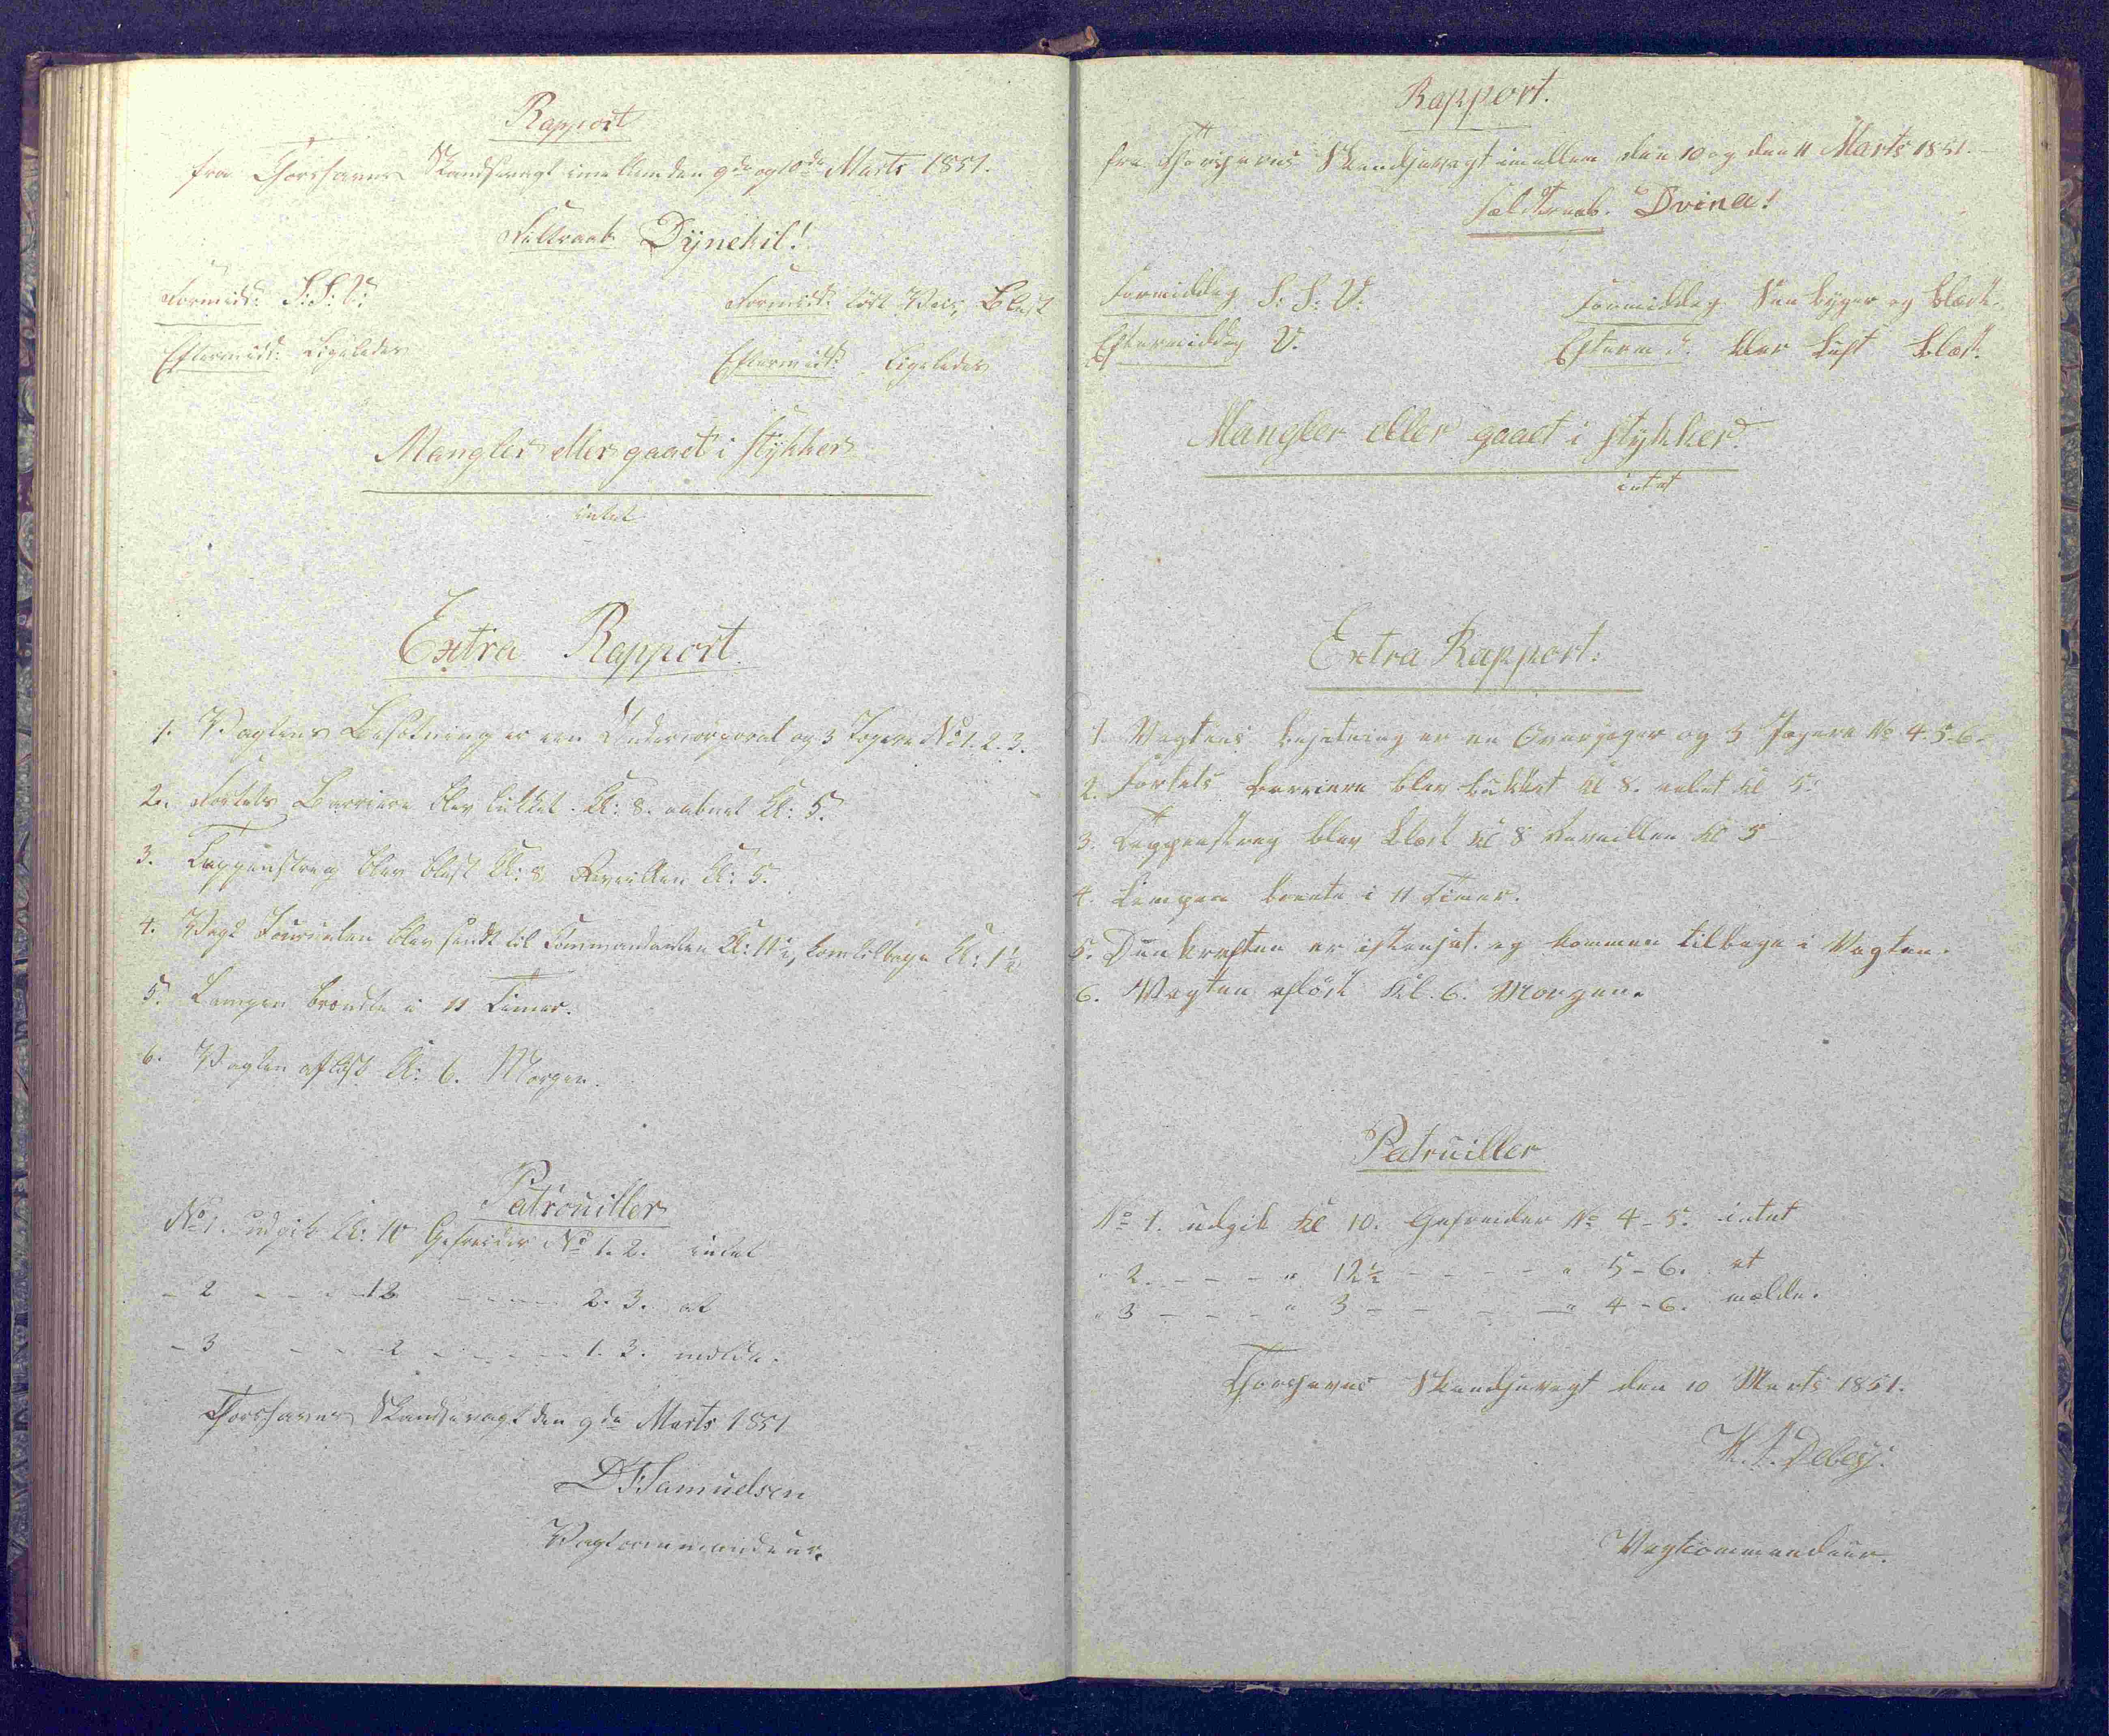 Rapport
fra Thorshavns Skandsevagt imellem den 9de og 10de Marts 1851.
Feltraab Dÿnekil!
Formidd: S: S: V:
Formidd: Blæst
Eftermidd: Ligeledes
Eftermidd: Ligeledes
Mangler eller gaaet i Stÿkker
intet
Extra Rapport.
1. Vagtens Besætning er een Undercorporal og 3 Jægere No 1. 2. 3.
2. Fortets Barriere blev lukket Kl: 8. aabnet Kl: 5.
3. Tappenstreg blev blæst Kl: 8 Reveillen Kl: 5.
4. Vagt blev sendt til Commandanten Kl: 11½, kom tilbage Kl: 1½
5. Lampen brændte i 11 Timer.
6. Vagten afløst Kl: 6. Morgen.
Patrouiller
No 1. udgik Kl: 10 Gefreider No 1. 2. intet
- 2 - - - 12 - - - - 2. 3. at
- 3 - - - 2 - - - - 1. 3. melde.
Thorshavns Skandsevagt den 9de Marts 1851
D Samuelsen
Vagtcommandeur.
Rapport.
fra Thorshavns Skandsevagt imellem den 10 og den 11 Marts 1851.
Feltraab. Dvina!
Formiddag S: S: V:
Formiddag Snee byger og blæst.
Eftermiddag V.
Efterm d. klar luft blæst.
Mangler eller gaaet i stÿkker.
intet
Extra Rapport:
1. Vagtens besætning er en Overjæger og 3 Jægere No 4. 5. 6.
2. Fortets barriere blev lukket Kl 8. aabnet Kl 5.
3. Tappenstreg blev blæst Kl 8 Reveillen Kl 5
4. Lampen brænte i 11 Timer.
5. Dunkraften er istansat og kommen tilbage i Vagten.
6. Vagten afløst Kl. 6. Morgen.
Patruiller
No 1. udgik Kl 10. Gefreider No 4-5. intet
" 2. - - - " 12½ - - - - " 5-6. at
" 3 - - - " 3 - - - - " 4-6. melde.
Thorshavns Skandsevagt den 10 Marts 1851.
Debes.
Vagtcommandeur.